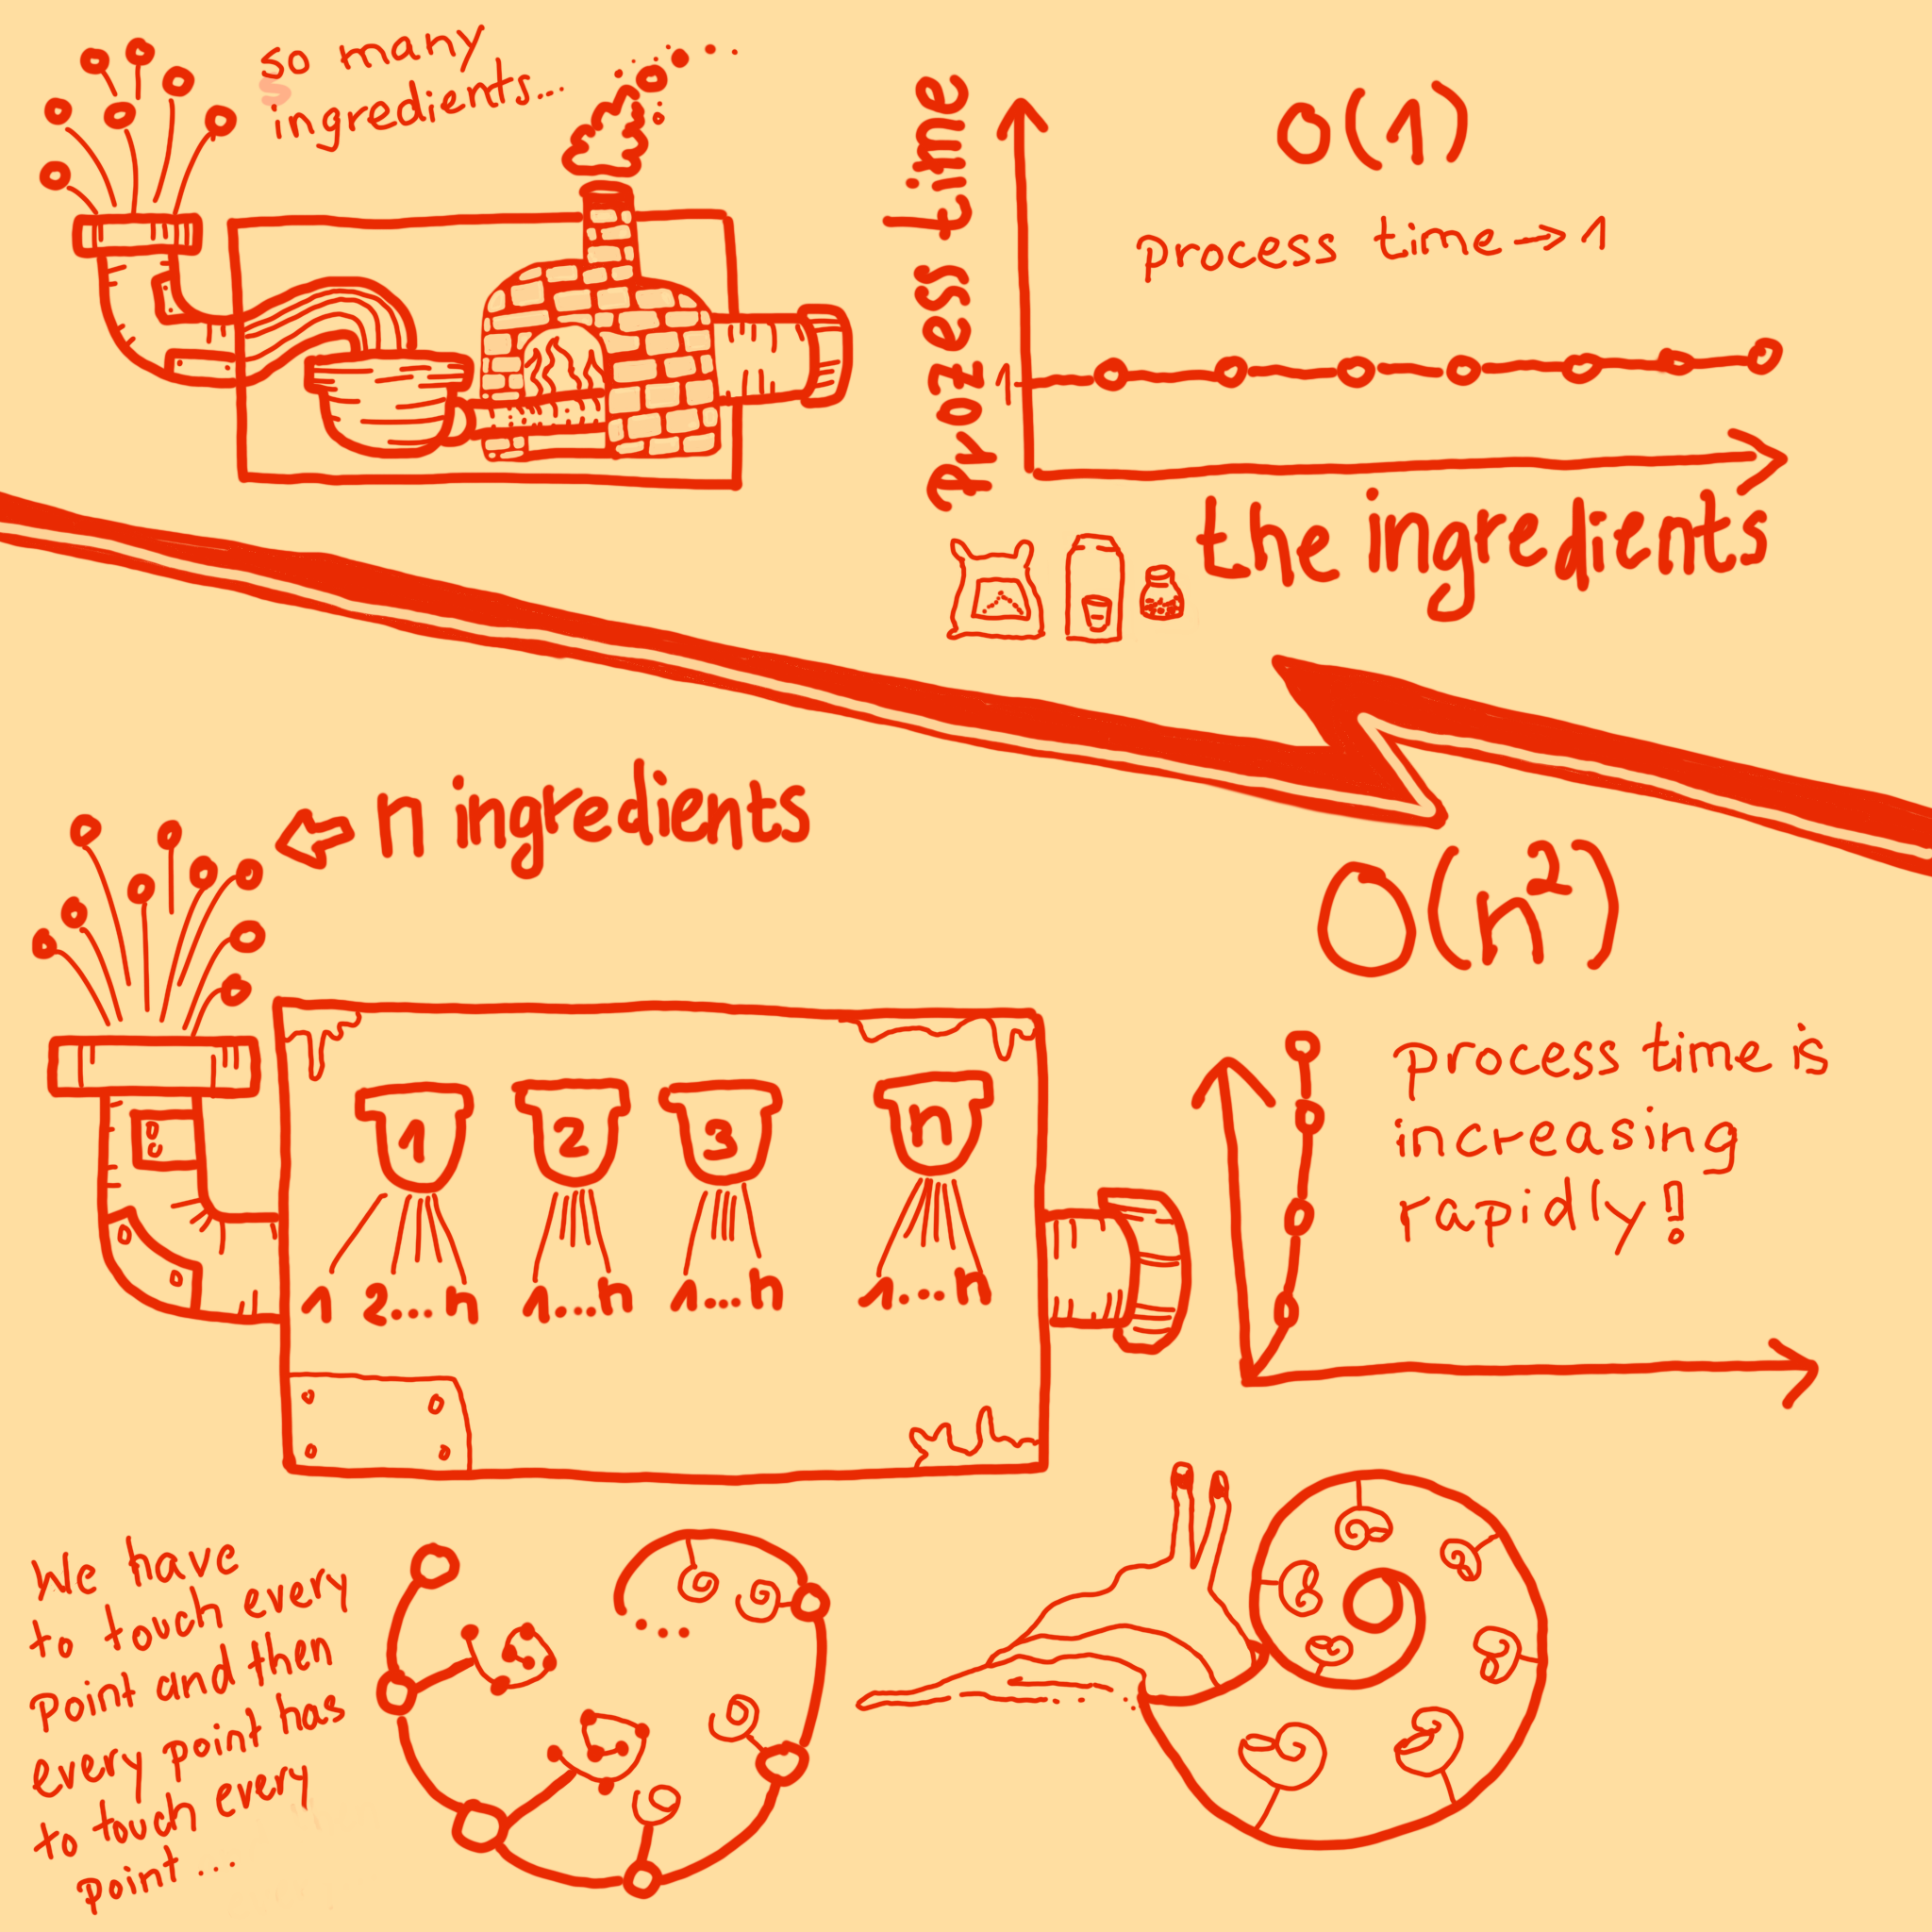 so many
ingredients...
Prozess time
O(1)
process time → 1
1
the ingredients
n ingredients
O(n²)
1 2 3 n
1 2...n 1...n 1...n 1...n
process time is
increasing
rapidly!!
We have
to touch every
point and then
every point has
to touch every
point...
...